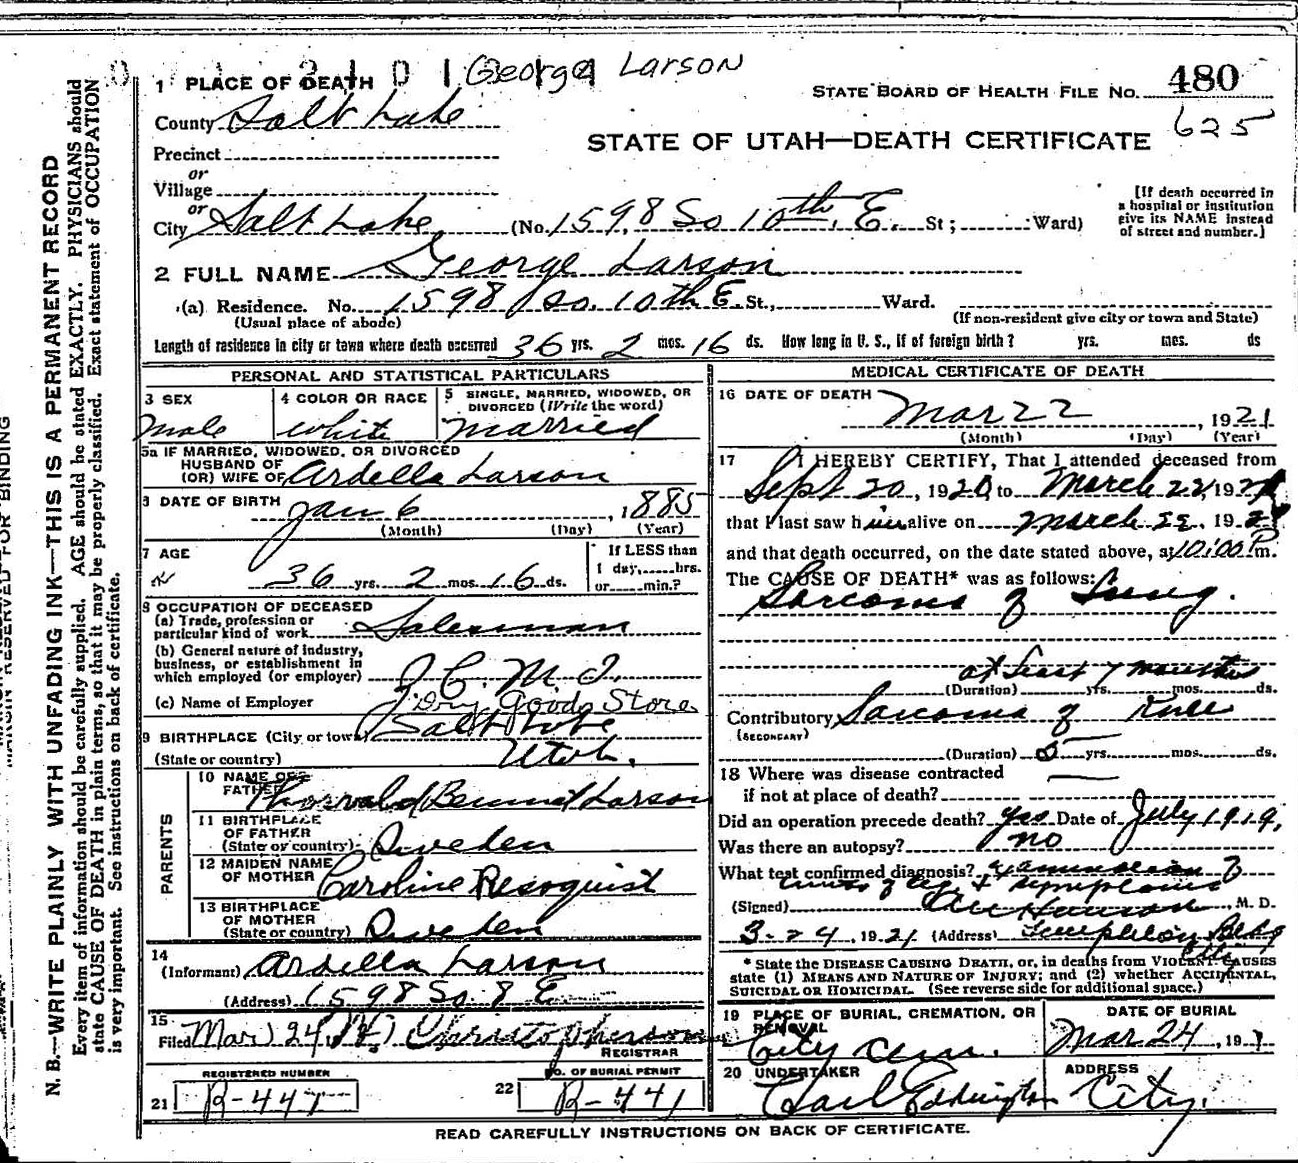 George Larson
1 PLACE OF DEATH
STATE BOARD OF HEALTH FILE NO. 480
625
County Salt Lake
STATE OF UTAH—DEATH CERTIFICATE
Precinct
or
Village
or
City Salt Lake (No. 1598 So 10th. E. St; Ward)
[If death occurred in
a hospital or institution
give its NAME instead
of street and number.]
2 FULL NAME George Larson
(a) Residence. No. 1598 So. 10th E. St., Ward.
(Usual place of abode) (If non-resident give city or town and State)
Length of residence in city or town where death occurred 36 yrs. 2 mos. 16 ds. How long in U. S., if of foreign birth? yrs. mos. ds
PERSONAL AND STATISTICAL PARTICULARS
3 SEX
Male
4 COLOR OR RACE
white
5 SINGLE, MARRIED, WIDOWED, OR
DIVORCED (Write the word)
Married
5a IF MARRIED, WIDOWED, OR DIVORCED
HUSBAND OF
(OR) WIFE OF Ardella Larson
6 DATE OF BIRTH
Jan 6, 1885
(Month) (Day) (Year)
7 AGE
36 yrs. 2 mos. 16 ds.
If LESS than
1 day, hrs.
or min.?
8 OCCUPATION OF DECEASED
(a) Trade, profession or
particular kind of work Salesman
(b) General nature of industry,
business, or establishment in
which employed (or employer) Z. C. M. I.
(c) Name of Employer Dry Goods Store
9 BIRTHPLACE (City or town) Salt Lake
(State or country) Utah.
PARENTS
10 NAME OF
FATHER Larson
11 BIRTHPLACE
OF FATHER
(State or country) Sweden
12 MAIDEN NAME
OF MOTHER Caroline
13 BIRTHPLACE
OF MOTHER
(State or country) Sweden
14
(Informant) Ardella Larson
(Address) 1598 So. 8 E
15
Filed Mar 24
REGISTRAR
REGISTERED NUMBER
21
NO. OF BURIAL PERMIT
22 B-441
MEDICAL CERTIFICATE OF DEATH
16 DATE OF DEATH
Mar 22, 1921
(Month) (Day) (Year)
17 I HEREBY CERTIFY, That I attended deceased from
Sept 20, 1920, to March 22, 1921
that I last saw him alive on March 22, 1921
and that death occurred, on the date stated above, at 10:00 P.m.
The CAUSE OF DEATH* was as follows:
Sarcoma of Lung.
at least 7 months
(Duration) yrs. mos. ds.
Contributory Sarcoma of Knee
(SECONDARY)
(Duration) 5 yrs. mos. ds.
18 Where was disease contracted
if not at place of death?
Did an operation precede death? yes Date of July 1919,
Was there an autopsy? no
What test confirmed diagnosis? examination of
symptoms
(Signed) M. D.
3-24, 1921 (Address) Templeton Bldg
* State the DISEASE CAUSING DEATH, or, in deaths from VIOLENT CAUSES
state (1) MEANS AND NATURE OF INJURY; and (2) whether ACCIDENTAL,
SUICIDAL OR HOMICIDAL. (See reverse side for additional space.)
19 PLACE OF BURIAL, CREMATION, OR
REMOVAL
City Cem.
DATE OF BURIAL
Mar 24, 19
20 UNDERTAKER
ADDRESS
City.
READ CAREFULLY INSTRUCTIONS ON BACK OF CERTIFICATE.
MARGIN RESERVED FOR BINDING
N. B.—WRITE PLAINLY WITH UNFADING INK—THIS IS A PERMANENT RECORD
Every item of information should be carefully supplied. AGE should be stated EXACTLY. PHYSICIANS should
state CAUSE OF DEATH in plain terms, so that it may be properly classified. Exact statement of OCCUPATION
is very important. See instructions on back of certificate.